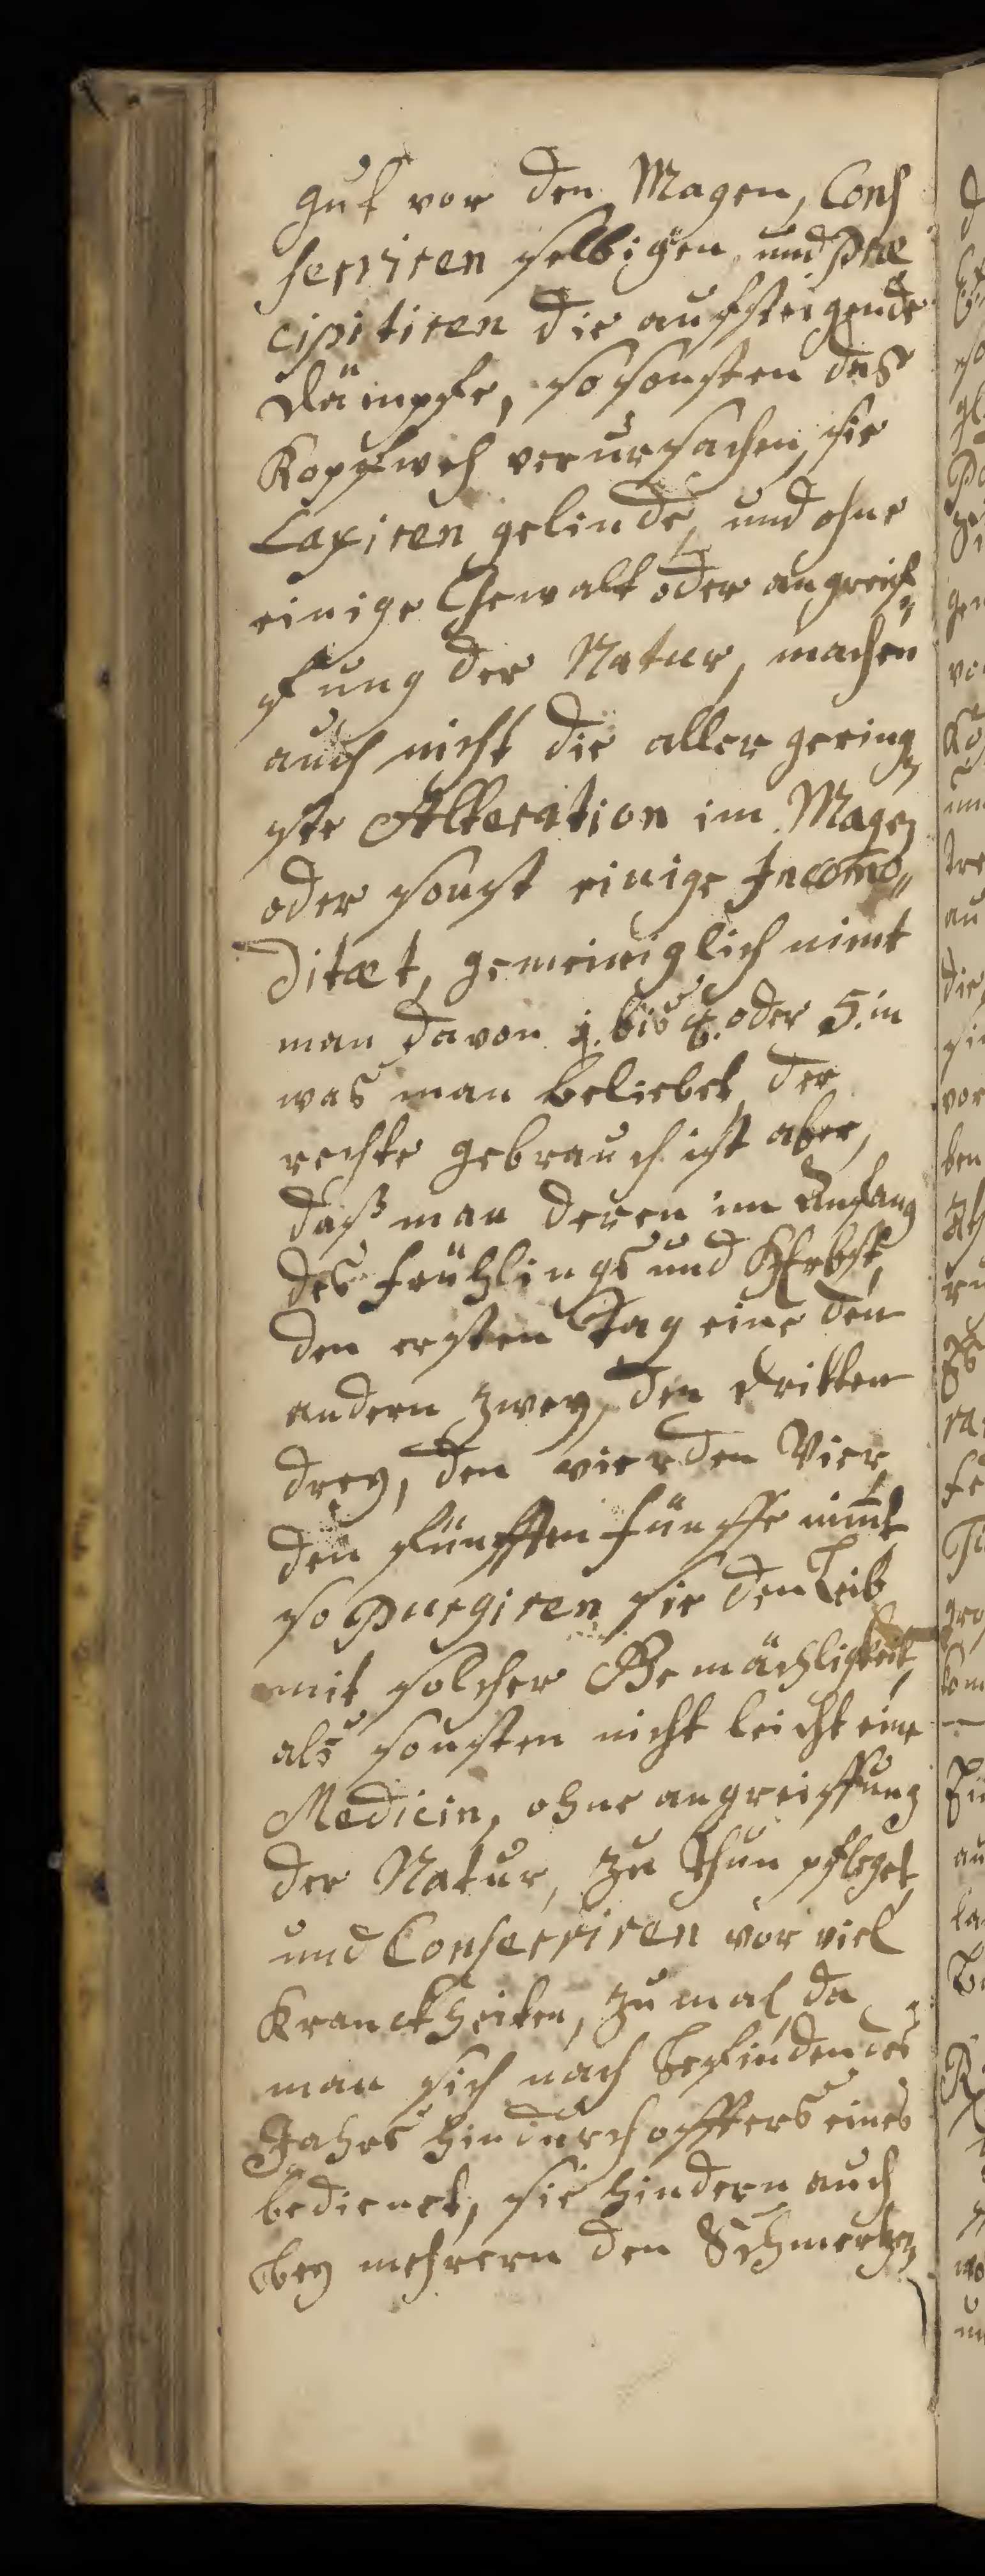 gut vor den Magen, Con
serviren selbigen, und præ
cipitiren die aufsteigende
dämpfe, so sonsten das
Kopfweh verursachen, sie
Laxiren gelinde, und ohne
einige Gewalt oder angreif„
fung der Natur, machen
auch nicht die aller gering„
ste Alteration im Magen
oder sonst einige Incomo„
ditæt, gemeiniglich nimt
man davon 4. bis oder 5. in
was man beliebet, der
rechte gebrauch ist aber,
daß man deren im Anfang
des Frühlings und Herbst,
den ersten Tag eine den
andern zwey, den dritten
drey, den vierden Vier,
den fünfften fünffe nimt
so purgiren sie den Leib
mit solcher Gemächligkeit,
als sonsten nicht leicht eine
Medicin, ohne angreiffung
der Natur, zu thun pfleget,
und Conserviren vor viel
Kranckheiten, zumal, da
man sich nach befinden des
Jahrs hindurch öffters eines
bedienet, sie hindern auch
bey mehrern den Schmertzen